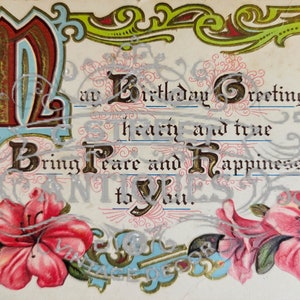 May Birthday Greeting
hearty and true
Bring Peace and Happiness
to You.